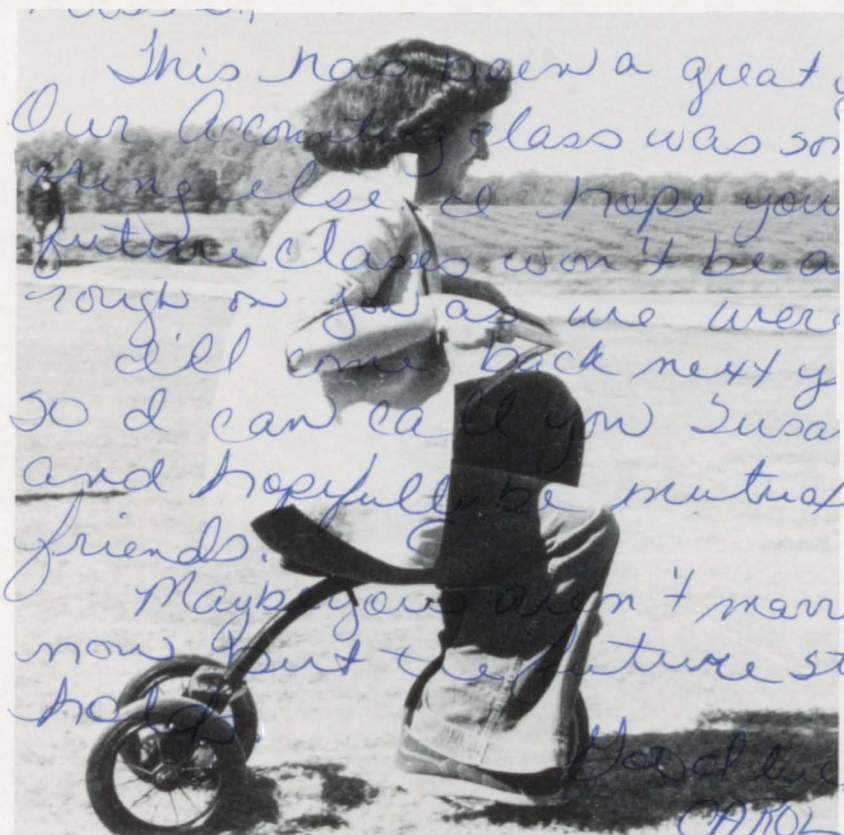 This has been a great y
Our Accounting class was som
thing else I hope you
future classes won't be a
rough on you as we were
I'll come back next y
so I can call you Susa
and hopefully be mutual
friends.
Maybe you aren't marr
now but the future st
holds.
Good luc
CAROL